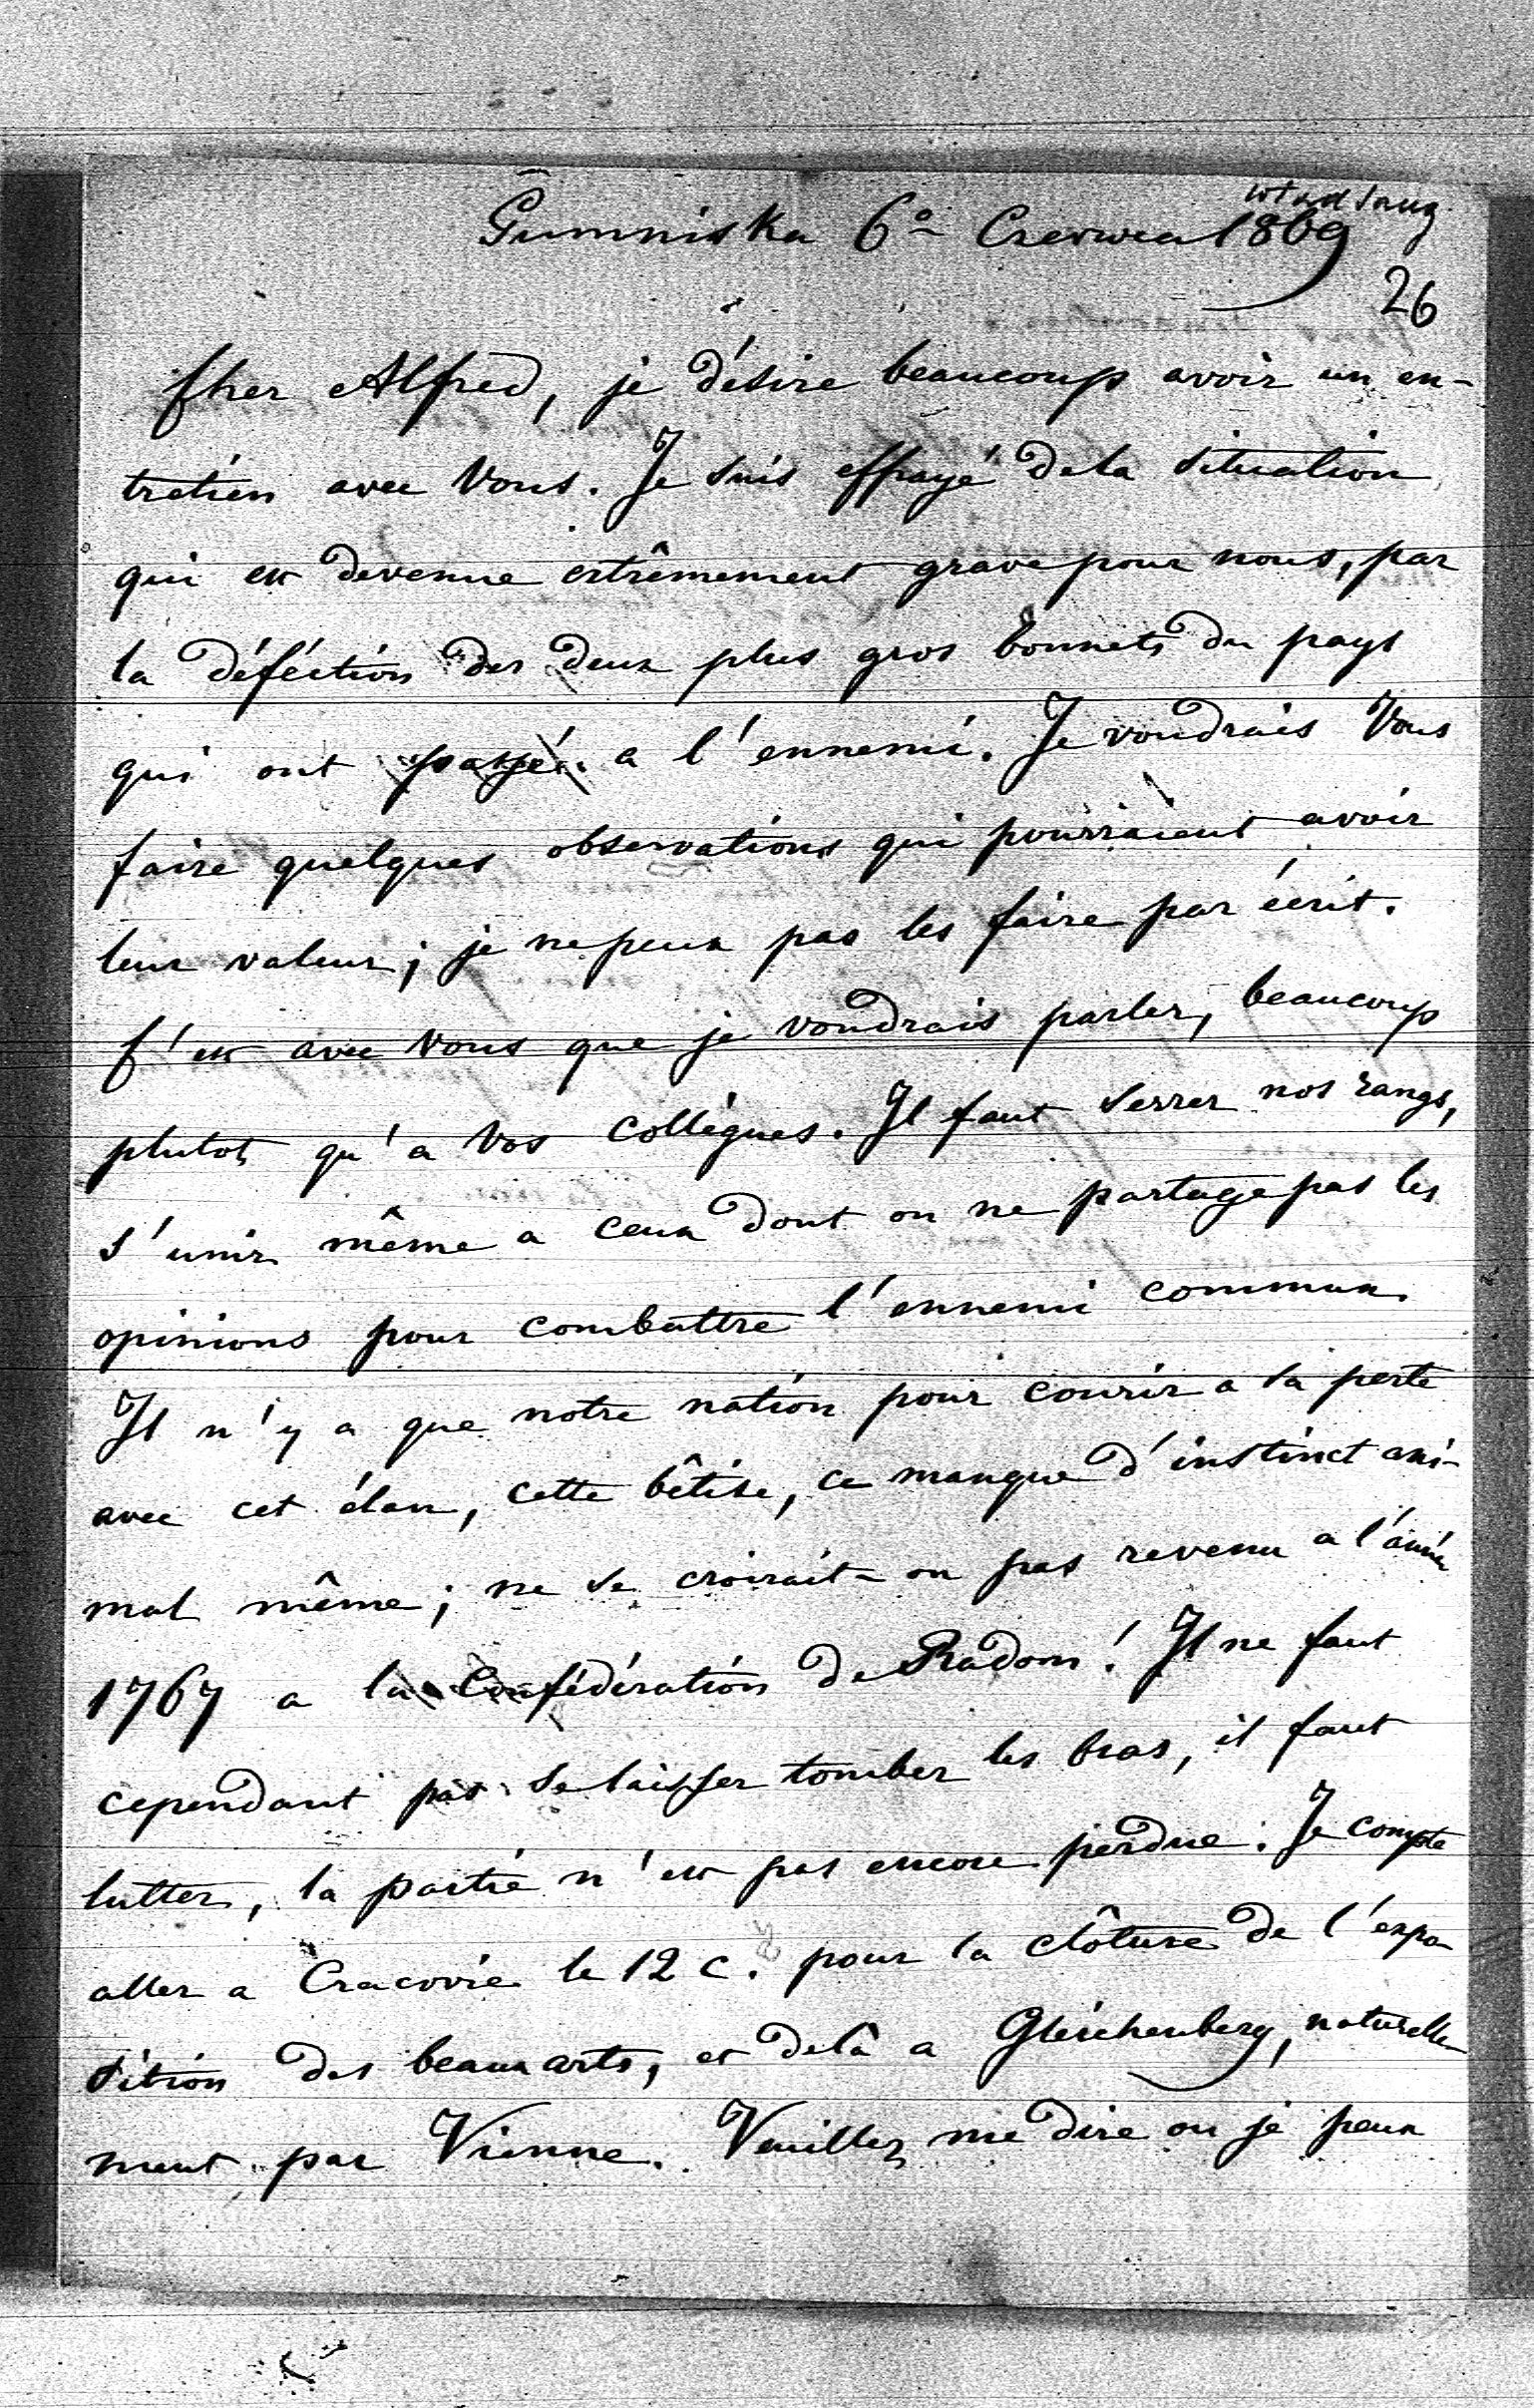 Gumniska 6° Czerwca 1869
26
Cher Alfred, je désire beaucoup avoir un en-
tretien avec Vous. Je suis effrayé de la situation
qui est devenue extrêmement grave pour nous, par
la déféction des deux plus gros bonnets du pays
qui ont passé a l'ennemi. Je voudrais Vous
faire quelques observations qui pourraient avoir
leur valeur; je ne peux pas les faire par écrit.
C'est avec Vous que je voudrais parler, beaucoup
plutot qu'a Vos collègues. Il faut serrer nos rangs,
s'unir même a ceux dont on ne partage pas les
opinions pour combattre l'ennemi commun.
Il n'y a que notre nation pour courir a sa perte
avec cet élan, cette bêtise, ce manque d'instinct ani-
mal même; ne se croirait-on pas revenu a l'année
1767 a la Confédération de Radom! Il ne faut
cependant pas se laisser tomber les bras, il faut
lutter, la partie n'est pas encore perdue. Je compte
aller a Cracovie le 12 c. pour la clôture de l'expo-
sition des beaux arts, et delà a Gleichenberg, naturelle-
ment par Vienne. Veuillez me dire ou je peux